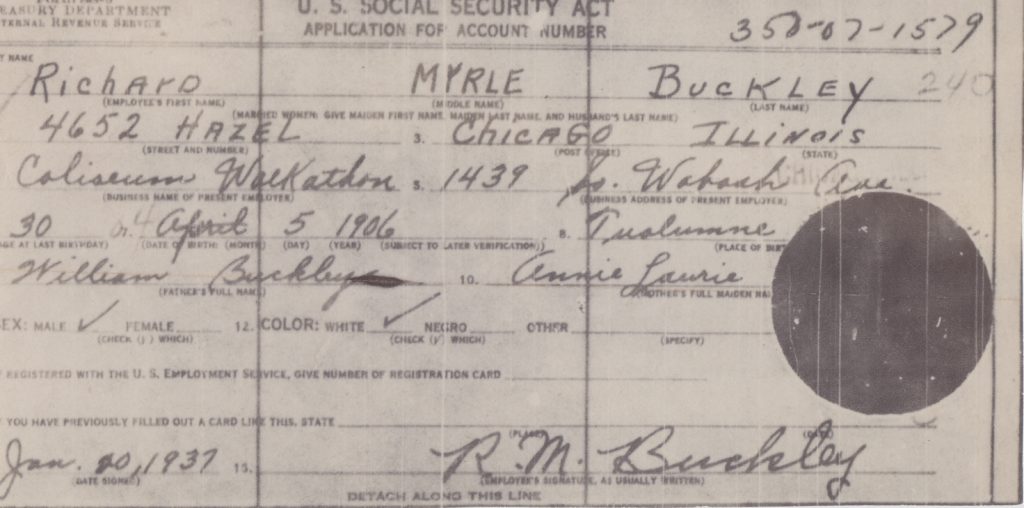 TREASURY DEPARTMENT
INTERNAL REVENUE SERVICE
U. S. SOCIAL SECURITY ACT
APPLICATION FOR ACCOUNT NUMBER
350-07-1579
NAME
Richard MYRLE BUCKLEY 240
(EMPLOYEE'S FIRST NAME) (MIDDLE NAME) (LAST NAME)
(MARRIED WOMEN: GIVE MAIDEN FIRST NAME, MAIDEN LAST NAME, AND HUSBAND'S LAST NAME)
4652 HAZEL 3. CHICAGO ILLINOIS
(STREET AND NUMBER) (POST OFFICE) (STATE)
Coliseum Walkathon 5. 1439 So. Wabash Ave.
(BUSINESS NAME OF PRESENT EMPLOYER) (BUSINESS ADDRESS OF PRESENT EMPLOYER)
30 April 5 1906 8. Tuolumne
AGE AT LAST BIRTHDAY) (DATE OF BIRTH: (MONTH) (DAY) (YEAR) (SUBJECT TO LATER VERIFICATION)) (PLACE OF BIRT
William Buckley 10. Annie Laurie
(FATHER'S FULL NAME) (MOTHER'S FULL MAIDEN NA
SEX: MALE ✓ FEMALE 12. COLOR: WHITE ✓ NEGRO OTHER
(CHECK (√) WHICH) (CHECK (√) WHICH) (SPECIFY)
REGISTERED WITH THE U. S. EMPLOYMENT SERVICE, GIVE NUMBER OF REGISTRATION CARD
YOU HAVE PREVIOUSLY FILLED OUT A CARD LIKE THIS, STATE
(PLACE) (DATE)
Jan. 20, 1937 15. R. M. Buckley
(DATE SIGNED) (EMPLOYEE'S SIGNATURE, AS USUALLY WRITTEN)
DETACH ALONG THIS LINE